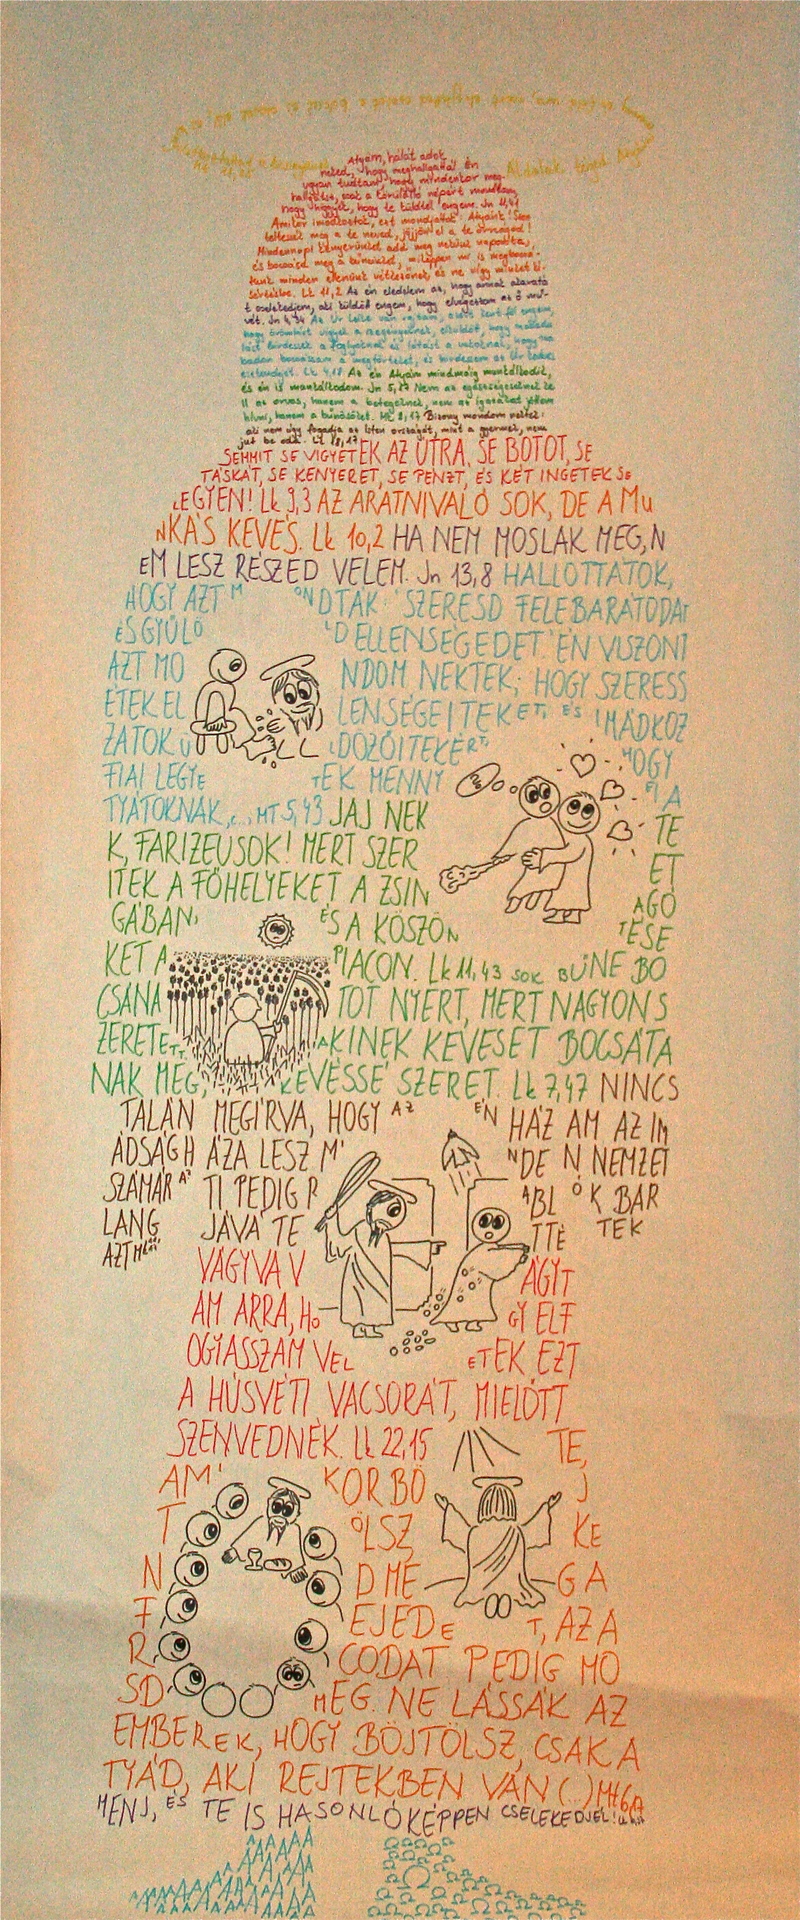 Atyám, hálát adok
neked, hogy meghallgattál. Én
ugyan tudtam, hogy mindenkor meg-
hallgatsz, csak a körülálló népért mondtam,
hogy higgyék, hogy te küldtél engem. Jn 11,41
Amikor imádkoztok, ezt mondjátok: Atyánk! Szen
teltessék meg a te neved, jöjjön el a te országod!
Mindennapi kenyerünket add meg nekünk naponta,
és bocsásd meg a bűneinket, miképpen mi is megbocsá-
tunk minden ellenünk vétkezőnek, és ne vigy minket kí-
sértésbe. Lk 11,2 Az én eledelem az, hogy annak akaratá
t cselekedjem, aki küldött engem, hogy elvégezzem az ő mű-
vét. Jn 4,34 Az Úr lelke van rajtam, azért kent föl engem,
hogy örömhírt vigyek a szegényeknek, elküldött, hogy szabadu
lást hirdessek a foglyoknak és látást a vakoknak, hogy sza
badon bocsássam a megtörteket, és hirdessem az Úr kedves
esztendejét. Lk 4,18 Az én Atyám mindmáig munkálkodik,
és én is munkálkodom. Jn 5,17 Nem az egészségeseknek ke
ll az orvos, hanem a betegeknek, nem az igazakat jöttem
hívni, hanem a bűnösöket. Mk 2,17 Bizony mondom nektek:
aki nem úgy fogadja az Isten országát, mint a gyermek, nem
jut be oda. Lk 18,17
SEMMIT SE VIGYETEK AZ ÚTRA, SE BOTOT, SE
TÁSKÁT, SE KENYERET, SE PÉNZT, ÉS KÉT INGETEK SE
LEGYEN! Lk 9,3 AZ ARATNIVALÓ SOK, DE A MU
NKÁS KEVÉS. Lk 10,2 HA NEM MOSLAK MEG, N
EM LESZ RÉSZED VELEM. Jn 13,8 HALLOTTÁTOK,
HOGY AZT M ONDTÁK: SZERESD FELEBARÁTODAT
ÉS GYŰLÖ LD ELLENSÉGEDET ÉN VISZONT
AZT MO NDOM NEKTEK; HOGY SZERESS
ÉTEK EL LENSÉGEITEKET, ÉS IMÁDKOZ
ZATOK Ü LDÖZŐITEKÉRT, HOGY
FIAI LEGYE TEK MENNY EI A
TYÁTOKNAK, (...) MT 5,43 JAJ NEK TE
K, FARIZEUSOK! MERT SZER ET
ITEK A FŐHELYEKET A ZSIN AGÓ
GÁBAN, ÉS A KÖSZÖN TÉSE
KET A PIACON. Lk 11,43 SOK BŰNE BO
CSÁNA TOT NYERT, MERT NAGYON S
ZERETETT, AKINEK KEVESET BOCSÁTA
NAK MEG, KEVÉSSÉ SZERET. Lk 7,47 NINCS
TALÁN MEGÍRVA, HOGY AZ ÉN HÁZ AM AZ IM
ÁDSÁG H ÁZA LESZ M' NDE N NEMZET
SZÁMÁR A' TI PEDIG R ABL Ó K BAR
LANG JÁVÁ TE TTÉ TEK
AZT Mk
VÁGYVA V ÁGYT
AM ARRA, HO GY ELF
OGYASSZAM VEL ETEK EZT
A HÚSVÉTI VACSORÁT, MIELŐTT
SZENVEDNÉK. Lk 22,15 TE,
AM' KOR BÖ J
T ÖLSZ KE
N D ME G A
F EJEDE T, AZ A
R CODAT PEDIG MO
SD MEG. NE LÁSSÁK AZ
EMBEREK, HOGY BÖJTÖLSZ, CSAK A
TYÁD, AKI REJTEKBEN VAN (...) Mt 6,17
MENJ, ÉS TE IS HASONLÓKÉPPEN CSELEKEDJÉL!